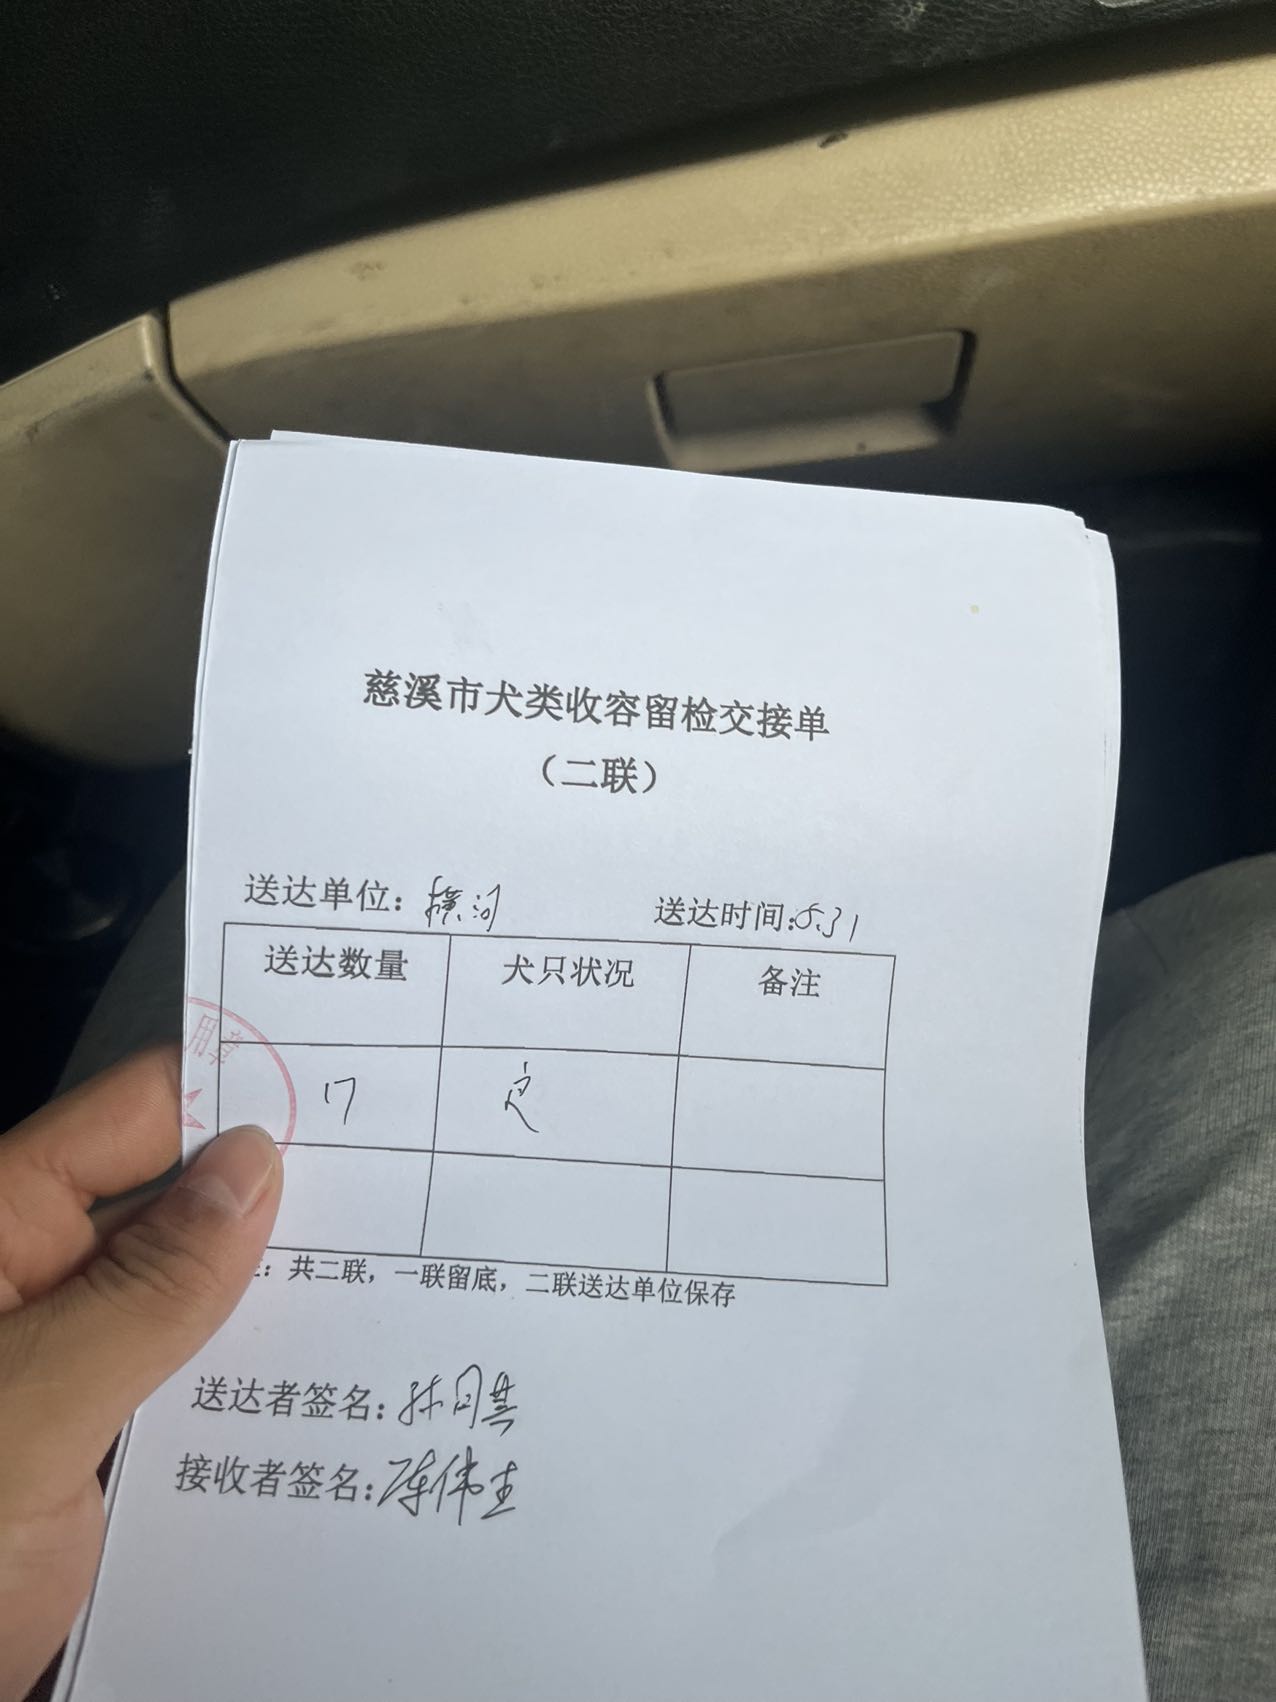 慈溪市犬类收容留检交接单
（二联）
送达单位：横河 送达时间：5.31
送达数量 犬只状况 备注
用章
17 良
：共二联，一联留底，二联送达单位保存
送达者签名：
接收者签名：陈伟